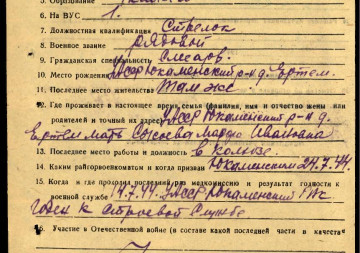 5. Образование
6. На ВУС 1.
7. Должностная квалификация Стрелок
8. Военное звание рядовой
9. Гражданская специальность Слесарь
10. Место рождения УАССР Юкаменский р-н д. Ертем.
11. Последнее место жительства Там же
12. Где проживает в настоящее время семья (фамилия, имя и отчество жены или
родителей и точный их адрес) УАССР Юкаменский р-н д.
Ертем мать Марфа Ивановна
13. Последнее место работы и должность в колхозе
14. Каким райгорвоенкоматом и когда призван Юкаменским 24.7.44.
15. Когда и где проходил последний раз медкомиссию и результат годности к
военной службе 19.7.44. УАССР Юкаменский РВК
годен к строевой службе
16. Участие в Отечественной войне (в составе какой последней части и в качестве